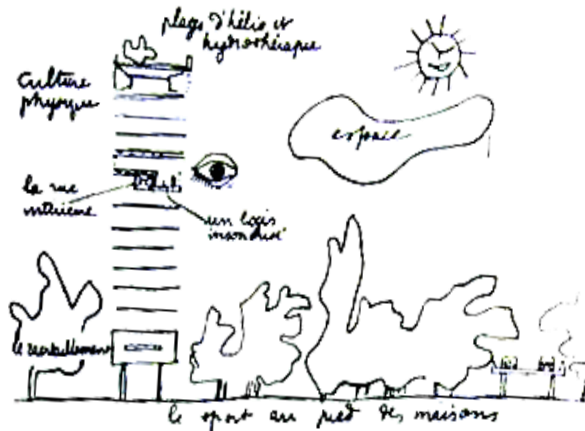 plage d'hélio et
hydrothérapie
culture
physique
espace
la rue
intérieure
un logis
insonorisé
le ravitaillement
le sport au pied des maisons